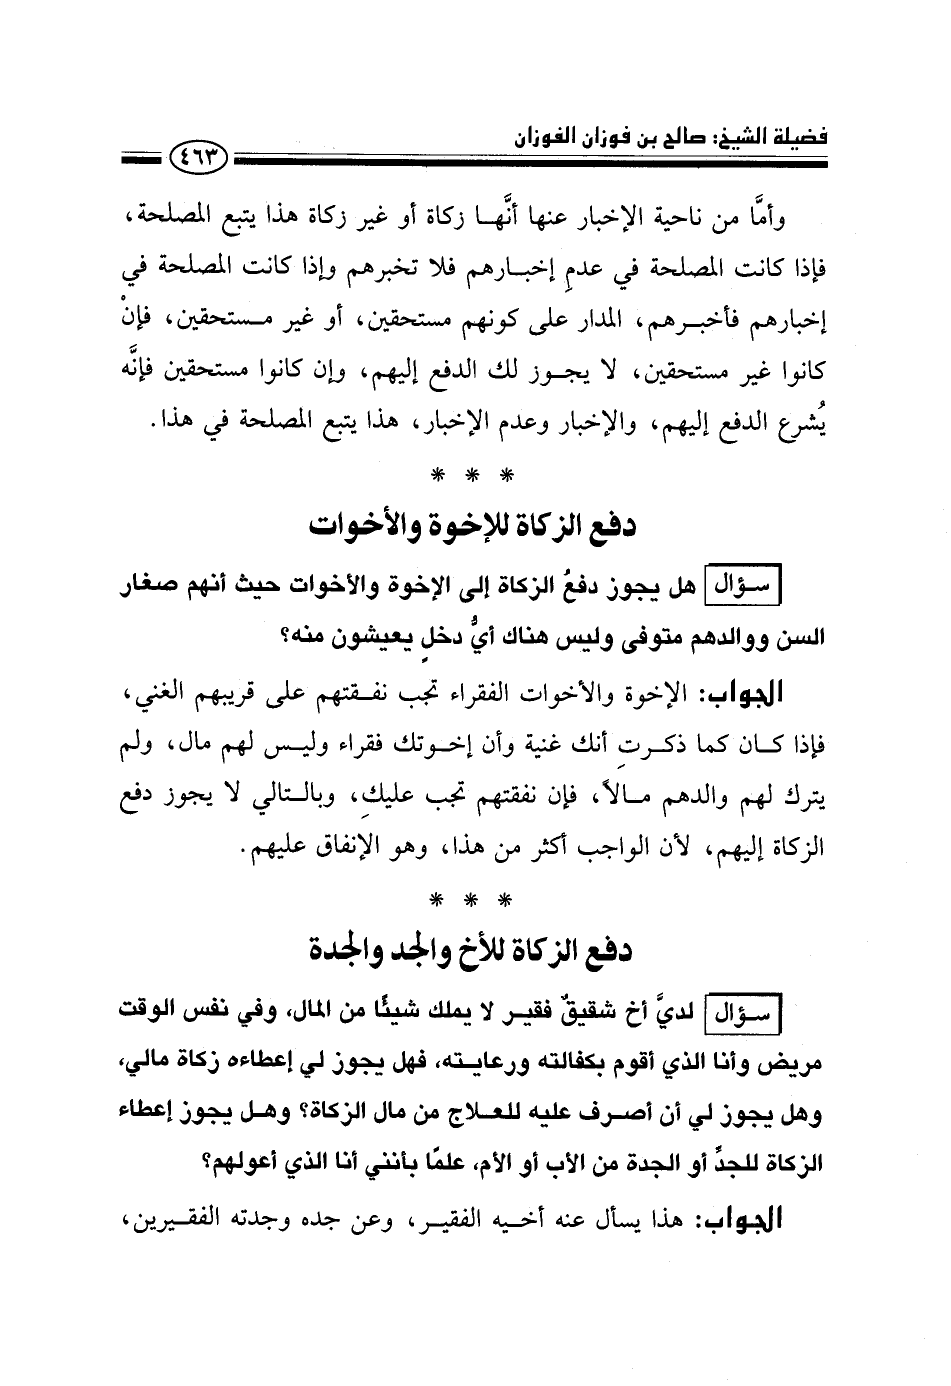 فضيلة الشيخ: صالح بن فوزان الفوزان
٤٦٣
وأمَّا من ناحية الإخبار عنها أنَّهـا زكاة أو غير زكاة هذا يتبع المصلحة،
فإذا كانت المصلحة في عدمِ إخبـارهم فلا تخبرهم وإذا كانت المصلحة في
إخبارهم فأخبـرهم، المدار على كونهم مستحقين، أو غير مـستحقين، فإنْ
كانوا غير مستحقين، لا يجـوز لك الدفع إليهم، وإن كانوا مستحقين فإنَّه
يُشرع الدفع إليهم، والإخبار وعدم الإخبار، هذا يتبع المصلحة في هذا.
* * *
دفع الزكاة للإخوة والأخوات
سـؤال هل يجوز دفعُ الزكاة إلى الإخوة والأخوات حيث أنهم صغار
السن ووالدهم متوفى وليس هناك أيُّ دخلٍ يعيشون منه؟
الجواب: الإخوة والأخوات الفقراء تجب نفـقتهم على قريبهم الغني،
فإذا كـان كما ذكـرتِ أنك غنية وأن إخـوتك فقراء وليـس لهم مال، ولم
يترك لهم والدهم مـالاً، فإن نفقتهم تجب عليكِ، وبالـتالي لا يجوز دفع
الزكاة إليهم، لأن الواجب أكثر من هذا، وهو الإنفاق عليهم.
* * *
دفع الزكاة للأخ والجد والجدة
سـؤال لديَّ أخ شقيقٌ فقيـر لا يملك شيئًا من المال، وفي نفس الوقت
مريض وأنا الذي أقوم بكفالته ورعايـته، فهل يجوز لي إعطاءه زكاة مالي،
وهل يجوز لي أن أصـرف عليه للعـلاج من مال الزكاة؟ وهـل يجوز إعطاء
الزكاة للجدِّ أو الجدة من الأب أو الأم، علمًا بأنني أنا الذي أعولهم؟
الجواب: هذا يسأل عنه أخـيه الفقيـر، وعن جده وجدته الفقـيرين،